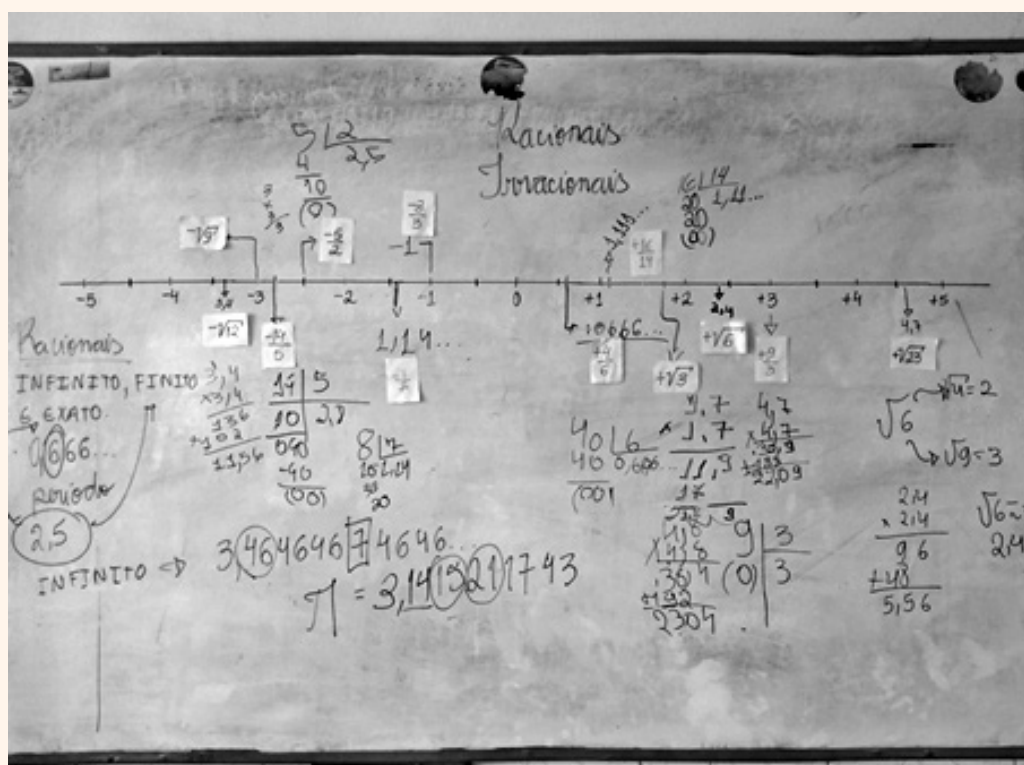 Racionais
Irracionais
5 2
2,5
4
10
(0)
16 14
1,11...
20
20
-1
1,111...
+16/14
-5 -4 -3 -2 -1 0 +1 +2 +3 +4 +5
2,4
4,7
-√12
1,14...
+0,666...
+√3
+√6
+√23
Racionais
INFINITO, FINITO
E EXATO.
0,666...
período
2,5
INFINITO
3,4
x3,4
136
+102
11,56
14 5
10 2,8
040
-40
(00)
8 7
10 1,14
30
20
40 6
40 0,666...
(00)
1,7
x 1,7
11,9
17
4,7
x 4,7
22,09
√6
√4=2
√9=3
4,8
x 4,8
2304
9 3
(0) 3
2,4
x 2,4
96
+48
5,56
√6=
2,4
3,4646467 4646...
π = 3,141521743